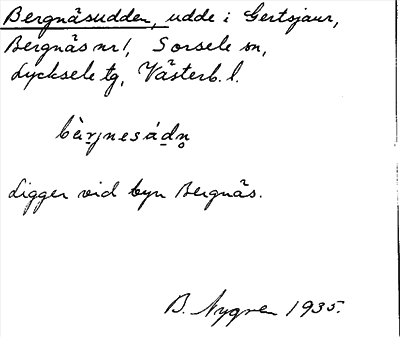 Bergnäsudden, udde i Gertsjaur,
Bergnäs nr 1, Sorsele sn,
Lycksele tg, Västerb. l.
bὰrjnesádn̥
Ligger vid byn Bergnäs.
B. Nygren 1935.